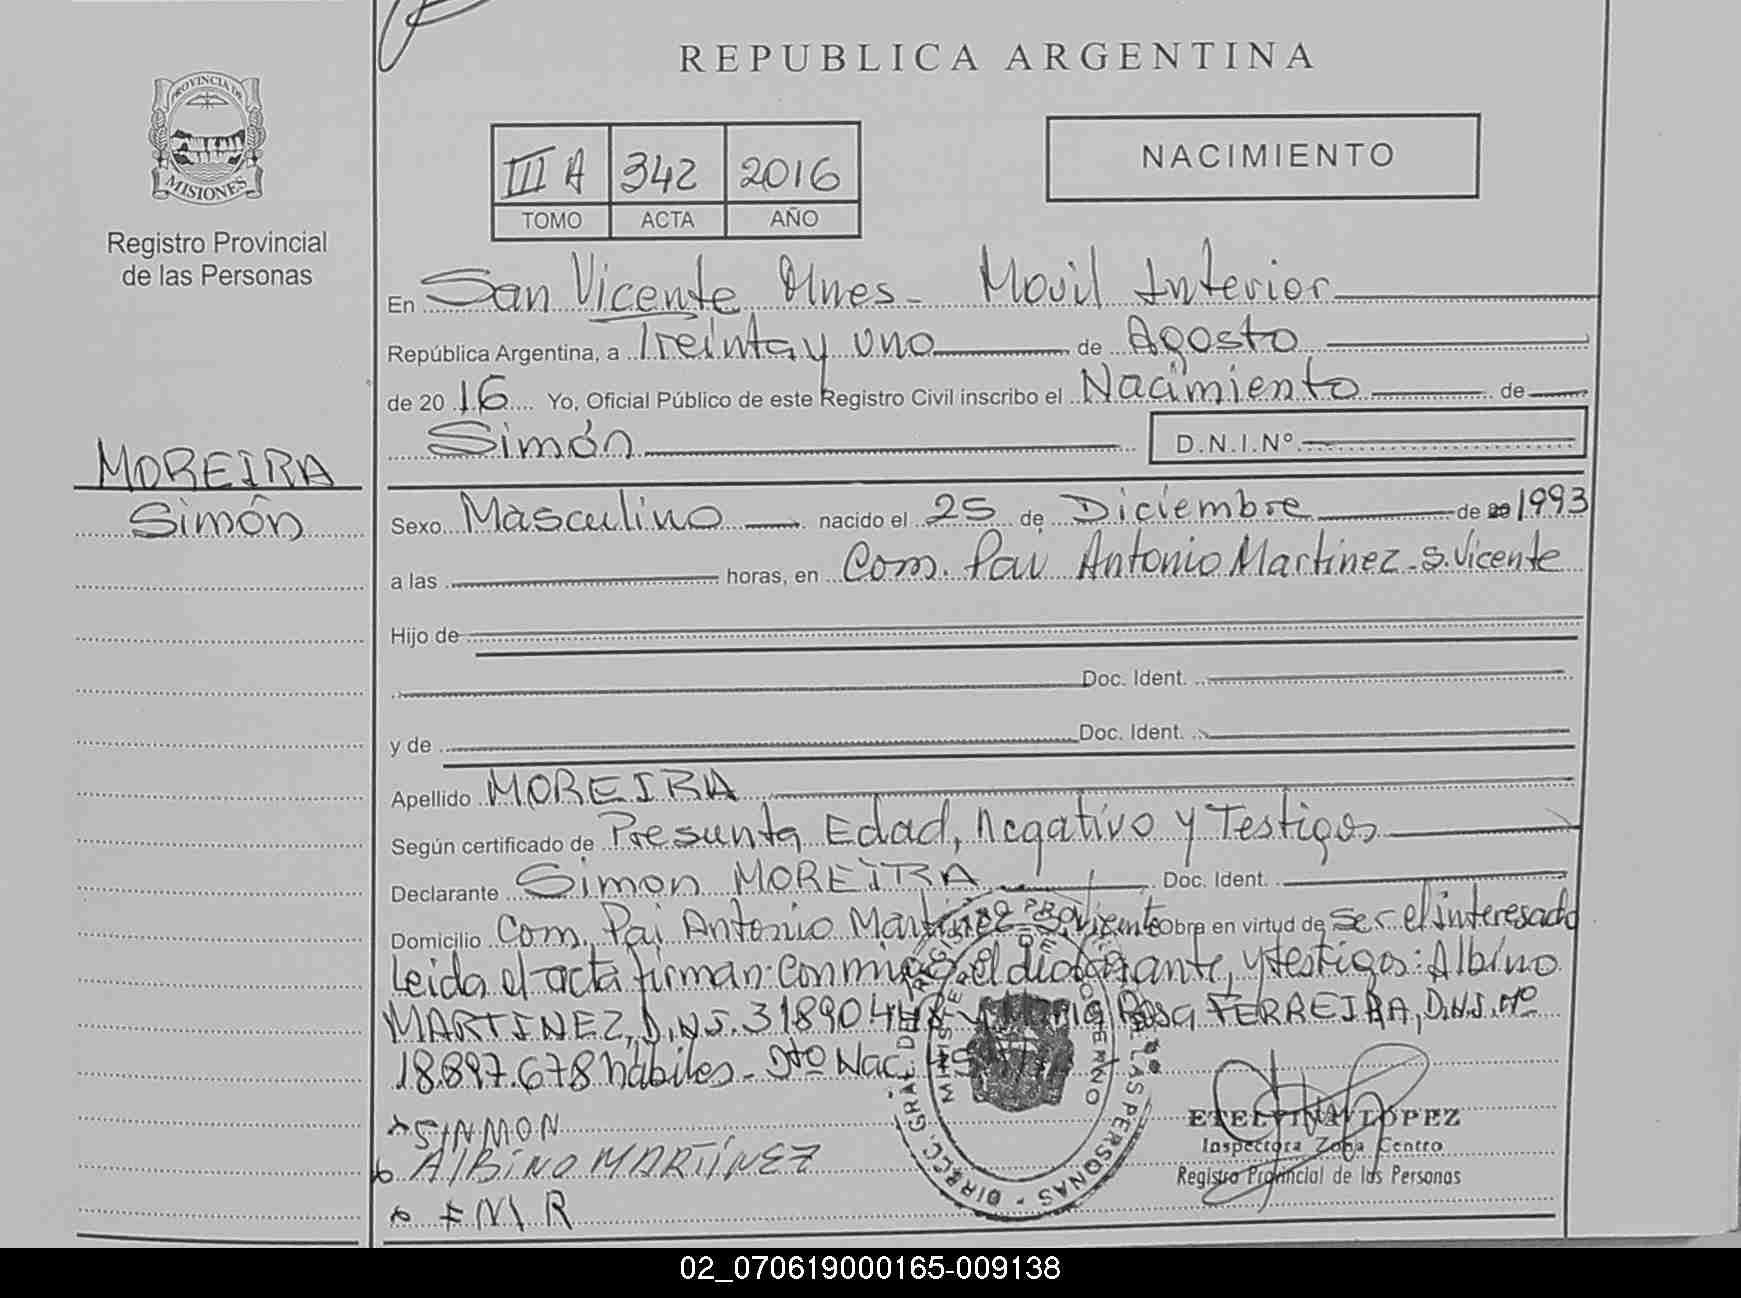 REPUBLICA ARGENTINA
PROVINCIA DE
MISIONES
Registro Provincial
de las Personas
III A 342 2016
TOMO ACTA AÑO
NACIMIENTO
En San Vicente Mnes- Movil Interior
República Argentina, a Treinta y uno de Agosto
de 20 16 Yo, Oficial Público de este Registro Civil inscribo el Nacimiento de
Simón D.N.I.Nº
MOREIRA
Simón
Sexo Masculino nacido el 25 de Diciembre de 20 1993
a las horas, en Com. Pai Antonio Martinez - S. Vicente
Hijo de
Doc. Ident.
y de Doc. Ident.
Apellido MOREIRA
Según certificado de Presunta Edad, Negativo y Testigos
Declarante Simon MOREIRA Doc. Ident.
Domicilio Com. Pai Antonio Martinez - S. Vicente Obra en virtud de ser el interesado
Leida el acta firman: conmigo el declarante, y testigos: Albino
MARTINEZ, D.N.I. 31890448 y Maria Rosa FERREIRA, D.N.I. Nº
18.897.678 hábiles - Dto Nac.
SINMON
ALBINO MARTINEZ
FMR
DIRECC. GRAL DEL REGISTRO PROV. DE LAS PERSONAS
MINISTERIO DE GOBIERNO
ETELVINA LOPEZ
Inspectora Zona Centro
Registro Provincial de las Personas
02_070619000165-009138